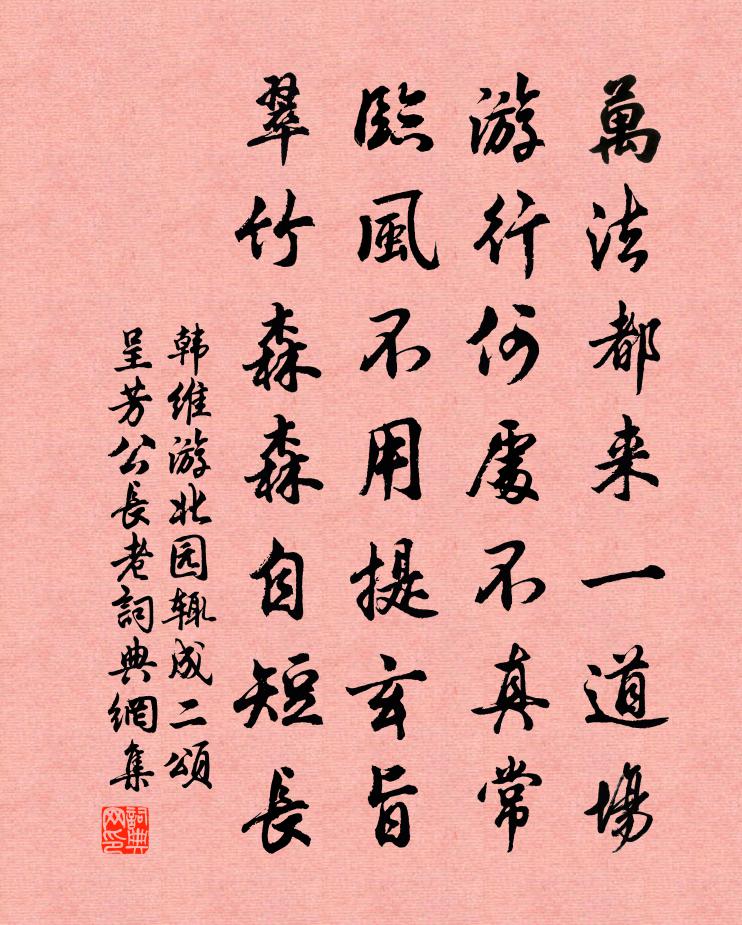 萬法都来一道場
游行何處不真常
臨風不用提玄旨
翠竹森森自短長
韩维游北园辄成二頌
呈芳公長老詞典網集
詞典网印